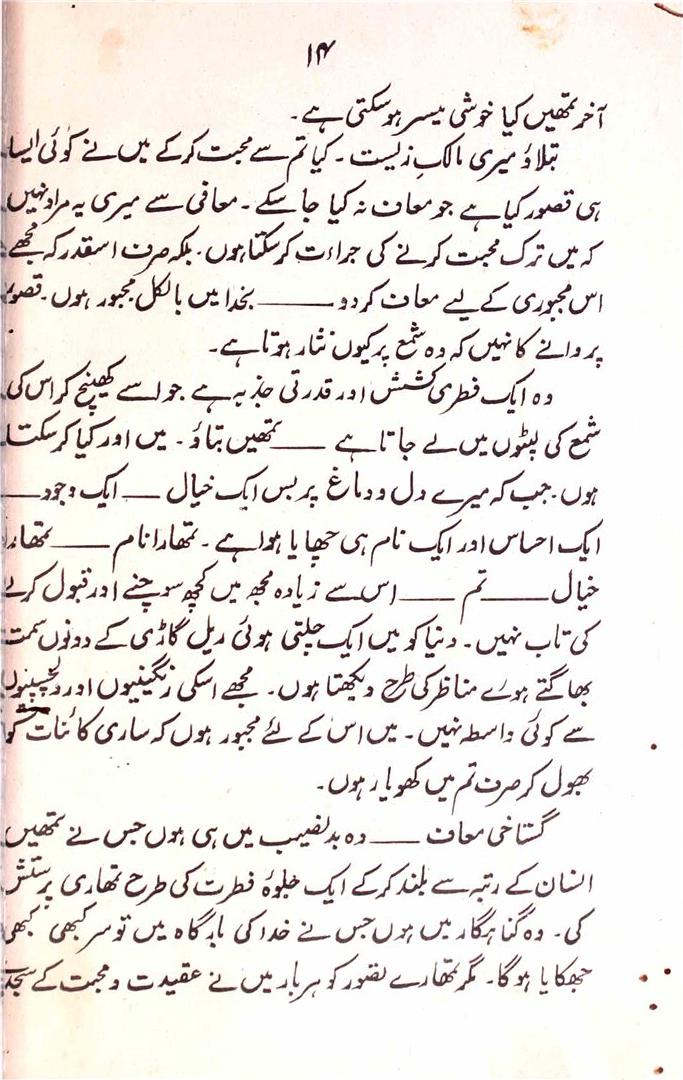 ۱۴
آخر تمھیں کیا خوشی میسر ہوسکتی ہے۔
بتلاؤ میری مالکِ زیست ۔ کیا تم سے محبت کرکے میں نے کوئی ایسا
ہی قصور کیا ہے جو معاف نہ کیا جا سکے ۔ معافی سے میری یہ مراد نہیں
کہ میں ترک محبت کرنے کی جراءت کرسکتا ہوں ۔ بلکہ صرف اسقدر کہ مجھے
اس مجبوری کے لیے معاف کردو ــــــ بخدا میں بالکل مجبور ہوں ۔ قصور
پروانے کا نہیں کہ وہ شمع پر کیوں نثار ہوتا ہے۔
وہ ایک فطری کشش اور قدرتی جذبہ ہے جو اسے کھینچ کر اس کی
شمع کی لپٹوں میں لے جاتا ہے ــــــ تمھیں بتاؤ ۔ میں اور کیا کرسکتا
ہوں ۔ جب کہ میرے دل و دماغ پر بس ایک خیال ــــ ایک وجود ــــ
ایک احساس اور ایک نام ہی چھایا ہوا ہے ۔ تمھارا نام ــــــ تمھارا
خیال ــــــ تم ــــــ اس سے زیادہ مجھ میں کچھ سوچنے اور قبول کرنے
کی تاب نہیں ۔ دنیا کو میں ایک چلتی ہوئی ریل گاڑی کے دونوں سمت
بھاگتے ہوے مناظر کی طرح دیکھتا ہوں ۔ مجھے اسکی رنگینیوں اور دلچسپیوں
سے کوئی واسطہ نہیں ۔ میں اس کے لئے مجبور ہوں کہ ساری کائنات کو
بھول کر صرف تم میں کھویا رہوں ۔
گستاخی معاف ــــــ وہ بدنصیب میں ہی ہوں جس نے تمھیں
انسان کے رتبہ سے بلند کرکے ایک جلوۂ فطرت کی طرح تمھاری پرستش
کی ۔ وہ گناہگار میں ہوں جس نے خدا کی بارگاہ میں تو سر کبھی کبھی
جھکایا ہوگا ۔ مگر تمھارے تصور کو ہر بار میں نے عقیدت و محبت کے سجدے